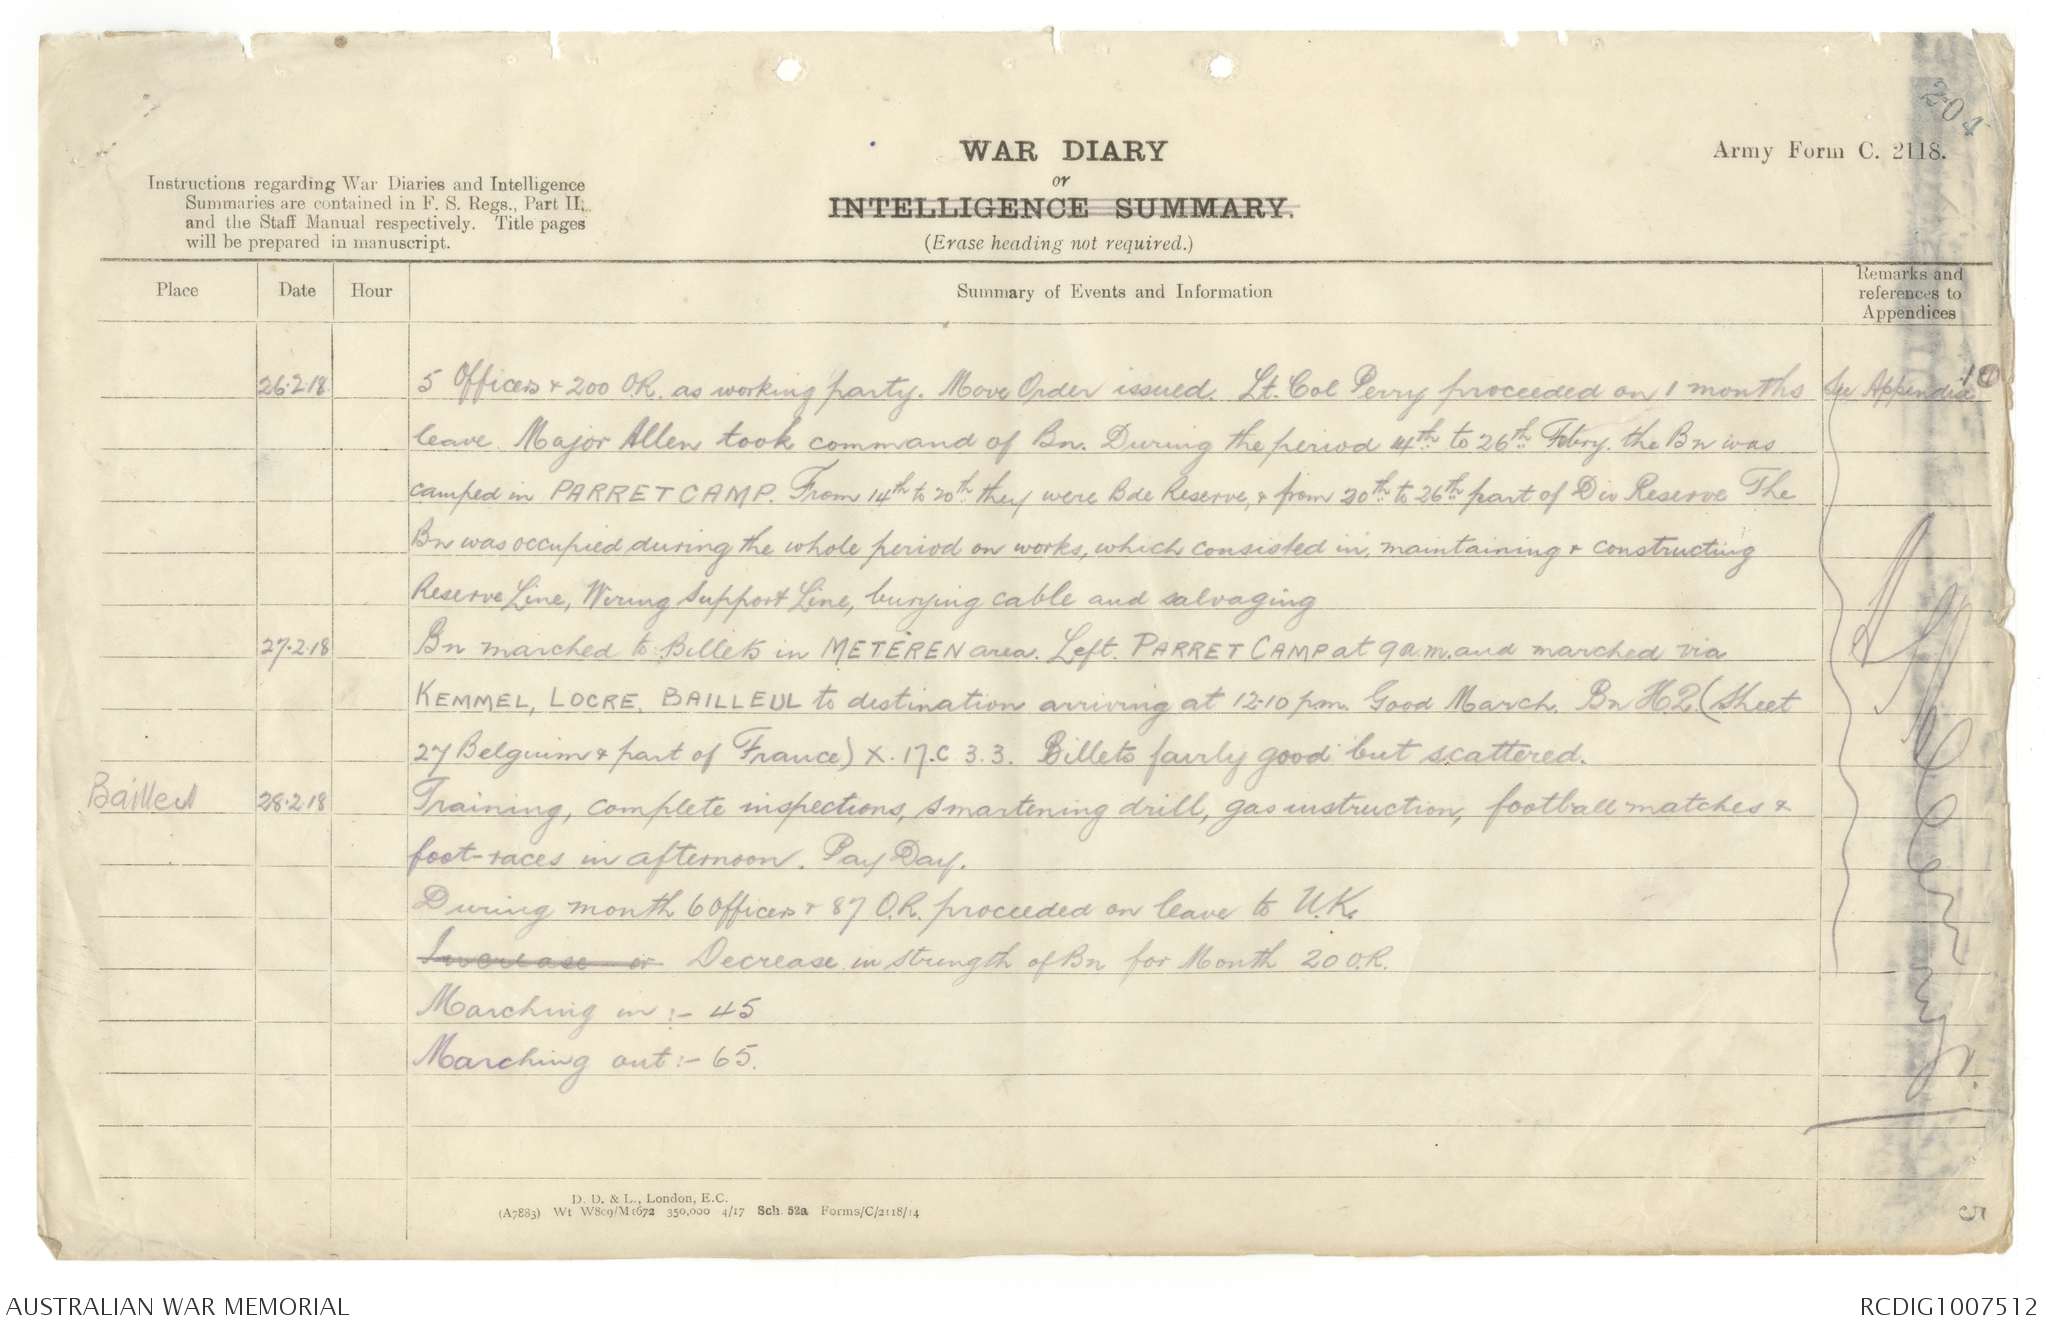 204
WAR DIARY
or
INTELLIGENCE SUMMARY.
(Erase heading not required.)
Army Form C. 2118.
Instructions regarding War Diaries and Intelligence
Summaries are contained in F. S. Regs., Part II,
and the Staff Manual respectively. Title pages
will be prepared in manuscript.
Place Date Hour Summary of Events and Information Remarks and references to Appendices
26.2.18 5 Officers & 200 O.R. as working party. Move Order issued. Lt. Col Perry proceeded on 1 months See Appendix 10
leave. Major Allen took command of Bn. During the period 14th to 26th Febry. the Bn was
camped in PARRET CAMP. From 14th to 20th they were Bde Reserve, & from 20th to 26th part of Div Reserve The
Bn was occupied during the whole period on works, which consisted in, maintaining & constructing
Reserve Line, Wiring Support Line, burying cable and salvaging
27.2.18 Bn marched to Billets in METEREN area. Left PARRET CAMP at 9 a.m. and marched via
KEMMEL, LOCRE, BAILLEUL to destination arriving at 12.10 pm. Good March. Bn H.Q. (Sheet
27 Belguim & part of France) X. 17. C 3.3. Billets fairly good but scattered.
Bailleul 28.2.18 Training, complete inspections, smartening drill, gas instruction, football matches &
foot-races in afternoon. Pay Day.
During month 6 Officers & 87 O.R. proceeded on leave to U.K.
Increase or Decrease in strength of Bn for Month 20 O.R.
Marching in :- 45
Marching out :- 65.
D. D. & L., London, E.C.
(A7883) Wt W809/M1672 350,000 4/17 Sch. 52a Forms/C/2118/14
5
AUSTRALIAN WAR MEMORIAL
RCDIG1007512